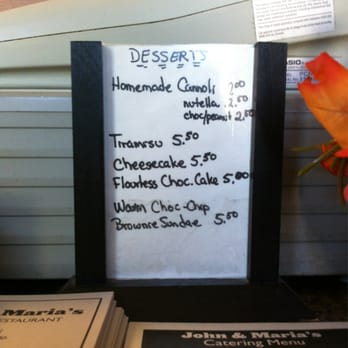 DESSERTS
Homemade Cannoli 2.00
nutella 2.50
choc/peanut 2.50
Tiramisu 5.50
Cheesecake 5.50
Flourless Choc. Cake 5.00
Warm Choc-Chip
Brownie Sundae 5.50
Maria's
RESTAURANT
John & Maria's
Catering Menu